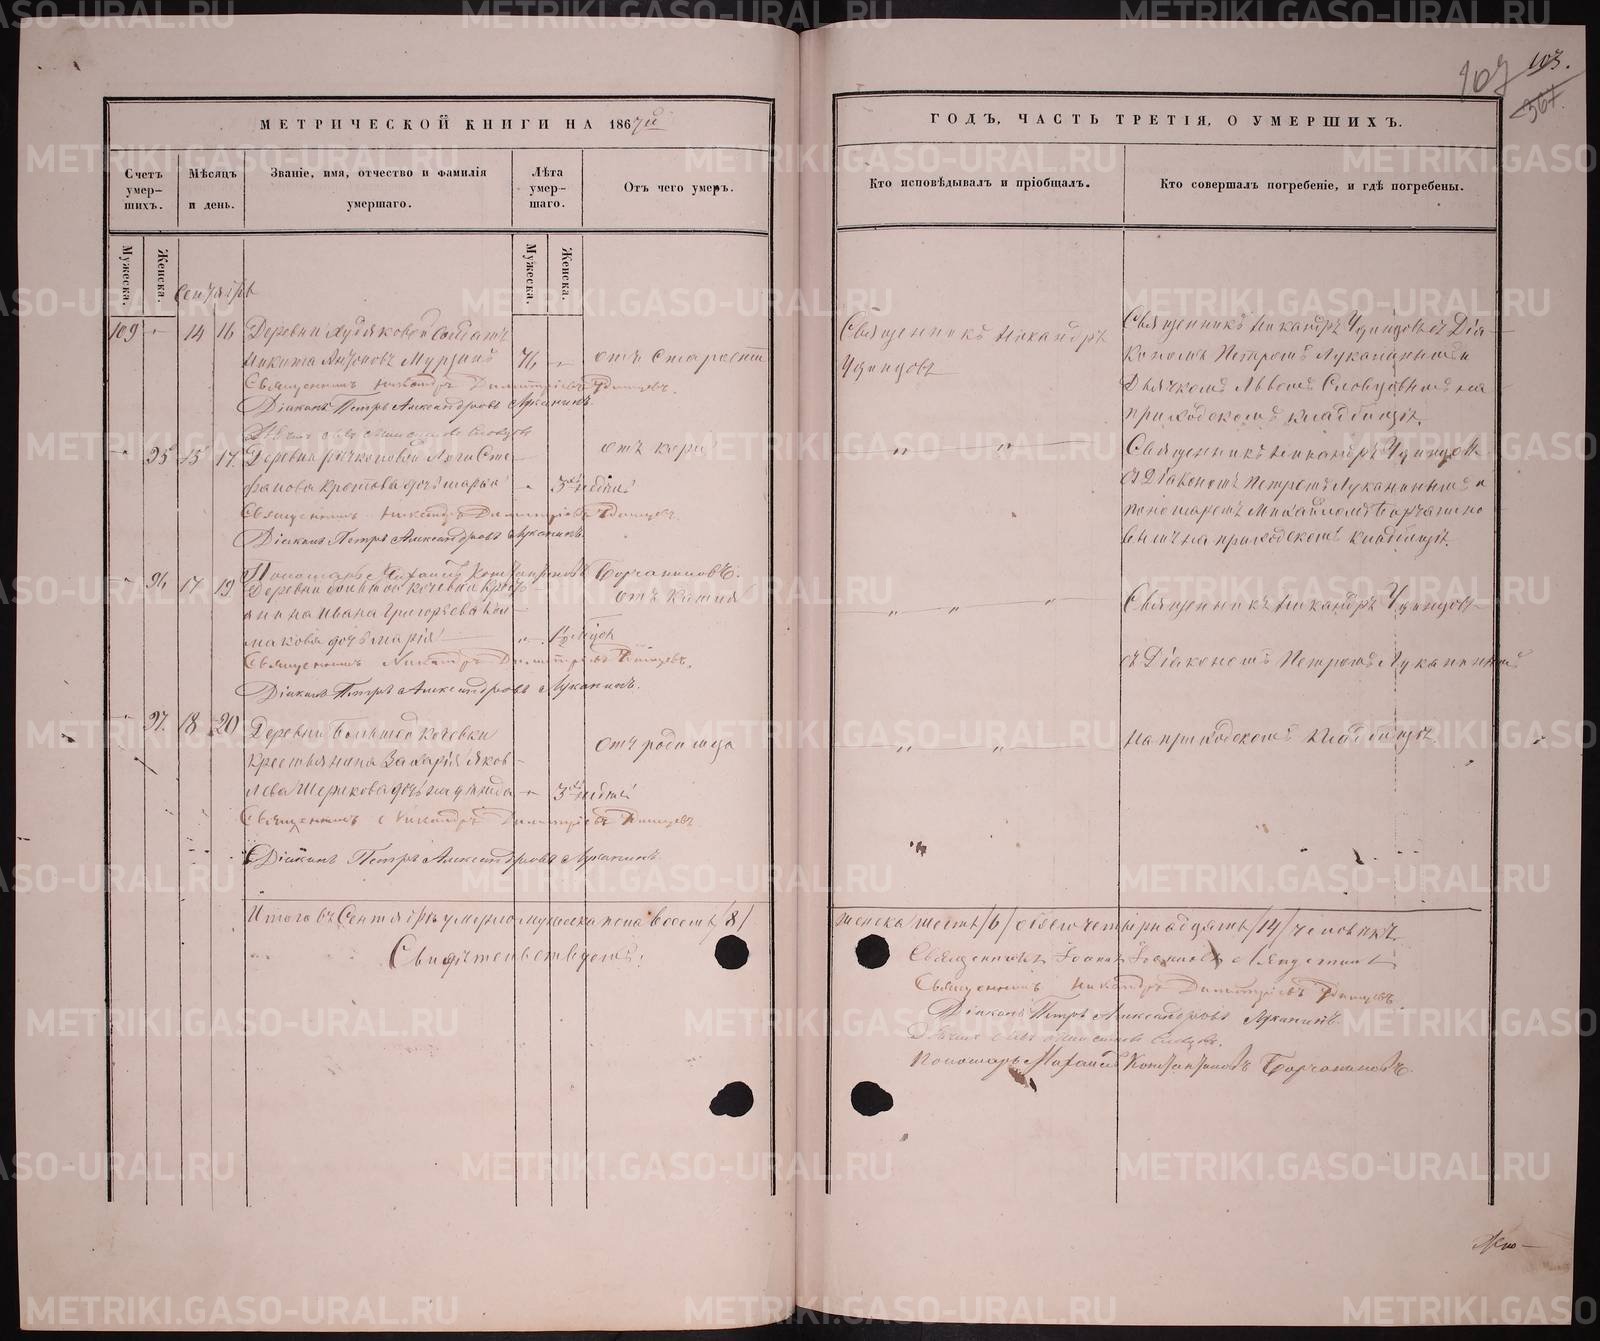 МЕТРИЧЕСКОЙ КНИГИ НА 1867й
Счетъ умер-
шихъ.
Мѣсяцъ
и день.
Званіе, имя, отчество и фамилія
умершаго.
Лѣта
умер-
шаго.
Отъ чего умеръ.
Мужеска.
Женска.
Мужеска.
Женска.
Сентябрь
109 14 16 Деревни Худяковой солдатъ
Никита Антоновъ Мурзинъ 76 отъ старости
Священникъ Никандръ Димитріевъ Удинцевъ.
Діаконъ Петръ Александровъ Луканинъ.
95 15 17 Деревни
отъ кори
фанова Кротова дочь Марья 3 недѣли
Священникъ Никандръ Димитріевъ Удинцевъ.
Діаконъ Петръ Александровъ Луканинъ.
Пономарь Михаилъ Константиновъ Борчаниновъ.
96 17 19 Деревни Большой Кочевки кресть-
отъ кашля
янина Ивана Григорьева Кол-
макова дочь Марія 1/2 года
Священникъ Никандръ Димитріевъ Удинцевъ.
Діаконъ Петръ Александровъ Луканинъ.
97. 18 20 Деревни Большой Кочевки
отъ родимца
крестьянина Захарія Яков-
лева дочь 3 недѣли
Священникъ Никандръ Димитріевъ Удинцевъ.
Діаконъ Петръ Александровъ Луканинъ
Итого въ Сентябрѣ умерло мужеска пола восемь /8/
Свидѣтельствовали:
103.
107
367.
ГОДЪ, ЧАСТЬ ТРЕТІЯ, О УМЕРШИХЪ.
Кто исповѣдывалъ и пріобщалъ.
Кто совершалъ погребеніе, и гдѣ погребены.
Священникъ Никандръ
Удинцовъ
Священникъ Никандръ Удинцовъ съ Діа-
кономъ Петромъ Луканинымъ и
Дьячкомъ Львомъ Словцовымъ на
приходскомъ кладбищѣ.
Священникъ Никандръ Удинцовъ
съ Діакономъ Петромъ Луканинымъ и
пономаремъ Михайломъ Борчанино-
вымъ на приходскомъ кладбищѣ.
Священникъ Никандръ Удинцовъ
съ Діакономъ Петромъ Луканинымъ
на приходскомъ кладбищѣ.
женска шесть /6/ обоего четырнадцать /14/ человѣкъ.
Священникъ Іоаннъ
Священникъ Никандръ Димитріевъ Удинцевъ.
Діаконъ Петръ Александровъ Луканинъ.
Пономарь Михаилъ Константиновъ Борчаниновъ.
METRIKI.GASO-URAL.RU